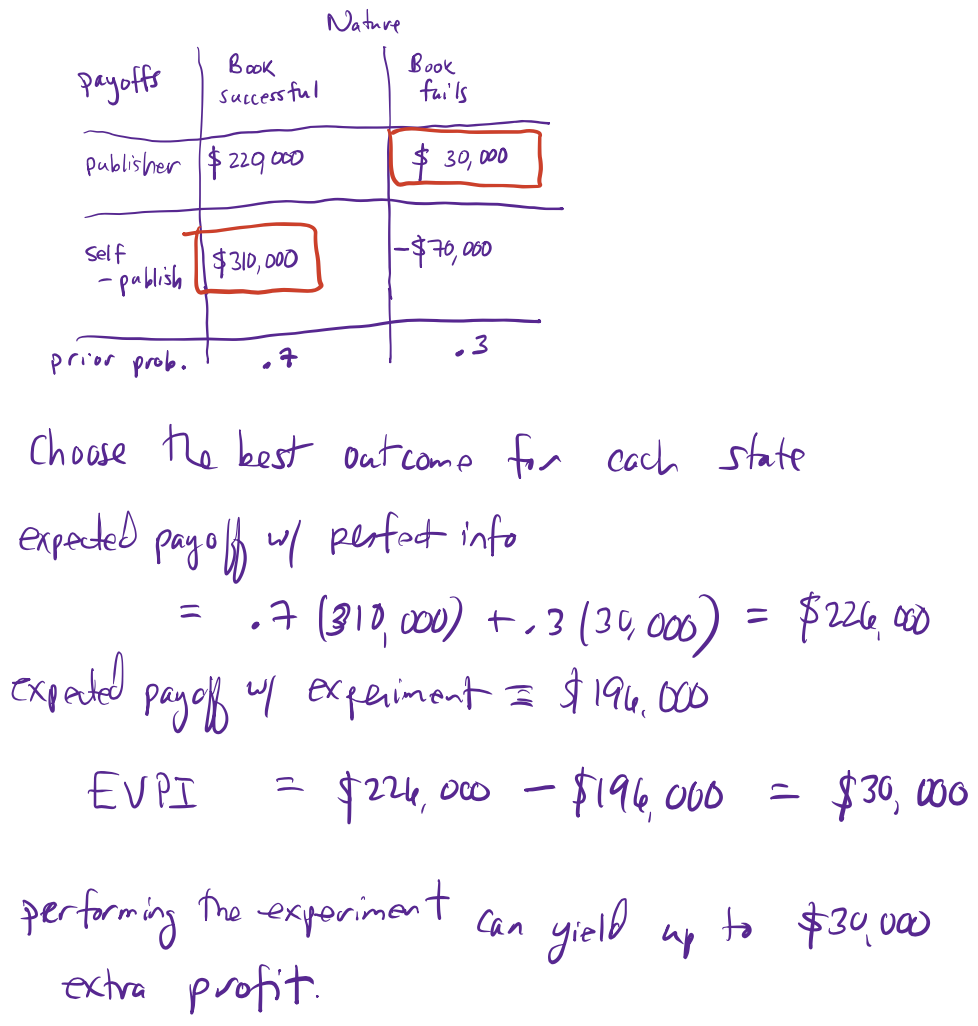 Nature
payoffs Book successful Book fails
publisher $220,000 $ 30,000
self - publish $310,000 -$70,000
prior prob. .7 .3
Choose the best outcome for each state
expected payoff w/ perfect info
= .7 (310,000) + .3 (30,000) = $226,000
expected payoff w/ experiment = $196,000
EVPI = $226,000 - $196,000 = $30,000
performing the experiment can yield up to $30,000
extra profit.